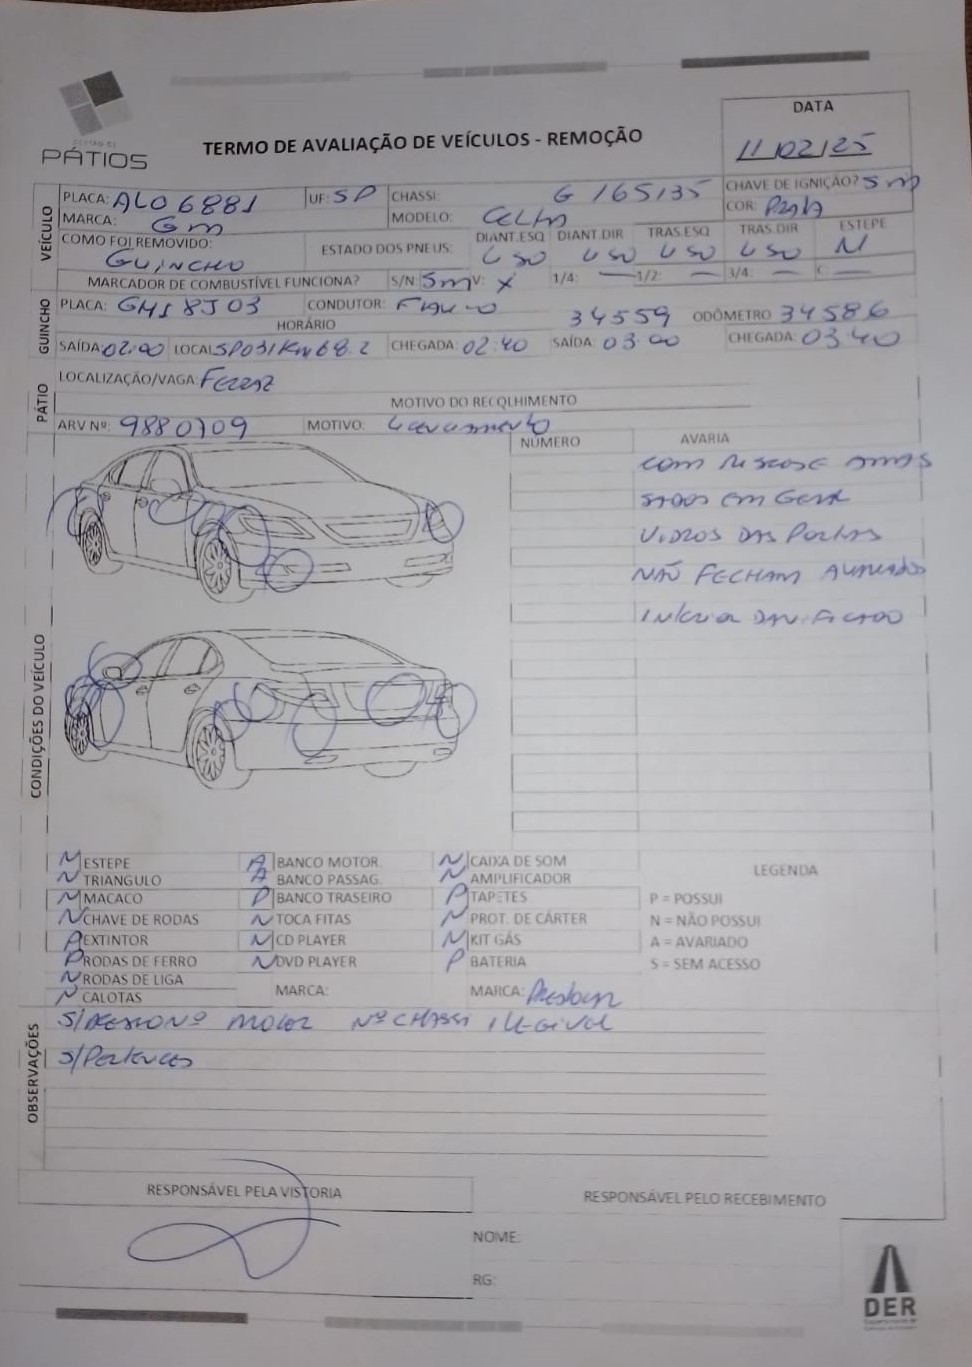 GESTÃO DE
PÁTIOS
TERMO DE AVALIAÇÃO DE VEÍCULOS - REMOÇÃO
DATA
11/02/25
VEÍCULO
PLACA: ALO 6881 UF: SP CHASSI: G 165135 CHAVE DE IGNIÇÃO? Sim
MARCA: Gm MODELO: Celta COR: Prata
COMO FOI REMOVIDO: GUINCHO ESTADO DOS PNEUS: DIANT.ESQ USO DIANT.DIR USO TRAS.ESQ USO TRAS.DIR USO ESTEPE N
MARCADOR DE COMBUSTÍVEL FUNCIONA? S/N: Sim V: X 1/4: — 1/2: — 3/4: — C: —
GUINCHO
PLACA: 8J03 CONDUTOR: 34559 ODÔMETRO 34586
HORÁRIO
SAÍDA: 02:00 LOCAL: SP031 KM 68.2 CHEGADA: 02:40 SAÍDA: 03:00 CHEGADA: 03:40
PÁTIO
LOCALIZAÇÃO/VAGA: Ferraz
MOTIVO DO RECOLHIMENTO
ARV Nº: 9880709 MOTIVO:
CONDIÇÕES DO VEÍCULO
NÚMERO AVARIA
COM RISCOS E AMAS
SADOS EM GERAL
VIDROS DAS PORTAS
NÃO FECHAM AVARIADOS
DANIFICADO
N ESTEPE A BANCO MOTOR. N CAIXA DE SOM LEGENDA
N TRIANGULO A BANCO PASSAG. N AMPLIFICADOR
N MACACO P BANCO TRASEIRO P TAPETES P = POSSUI
N CHAVE DE RODAS N TOCA FITAS N PROT. DE CÁRTER N = NÃO POSSUI
EXTINTOR N CD PLAYER N KIT GÁS A = AVARIADO
P RODAS DE FERRO N DVD PLAYER P BATERIA S = SEM ACESSO
N RODAS DE LIGA MARCA: MARCA:
N CALOTAS
OBSERVAÇÕES
Nº MOTOR Nº CHASSI ILEGIVEL
S/PERTENCES
RESPONSÁVEL PELA VISTORIA RESPONSÁVEL PELO RECEBIMENTO
NOME:
RG:
DER